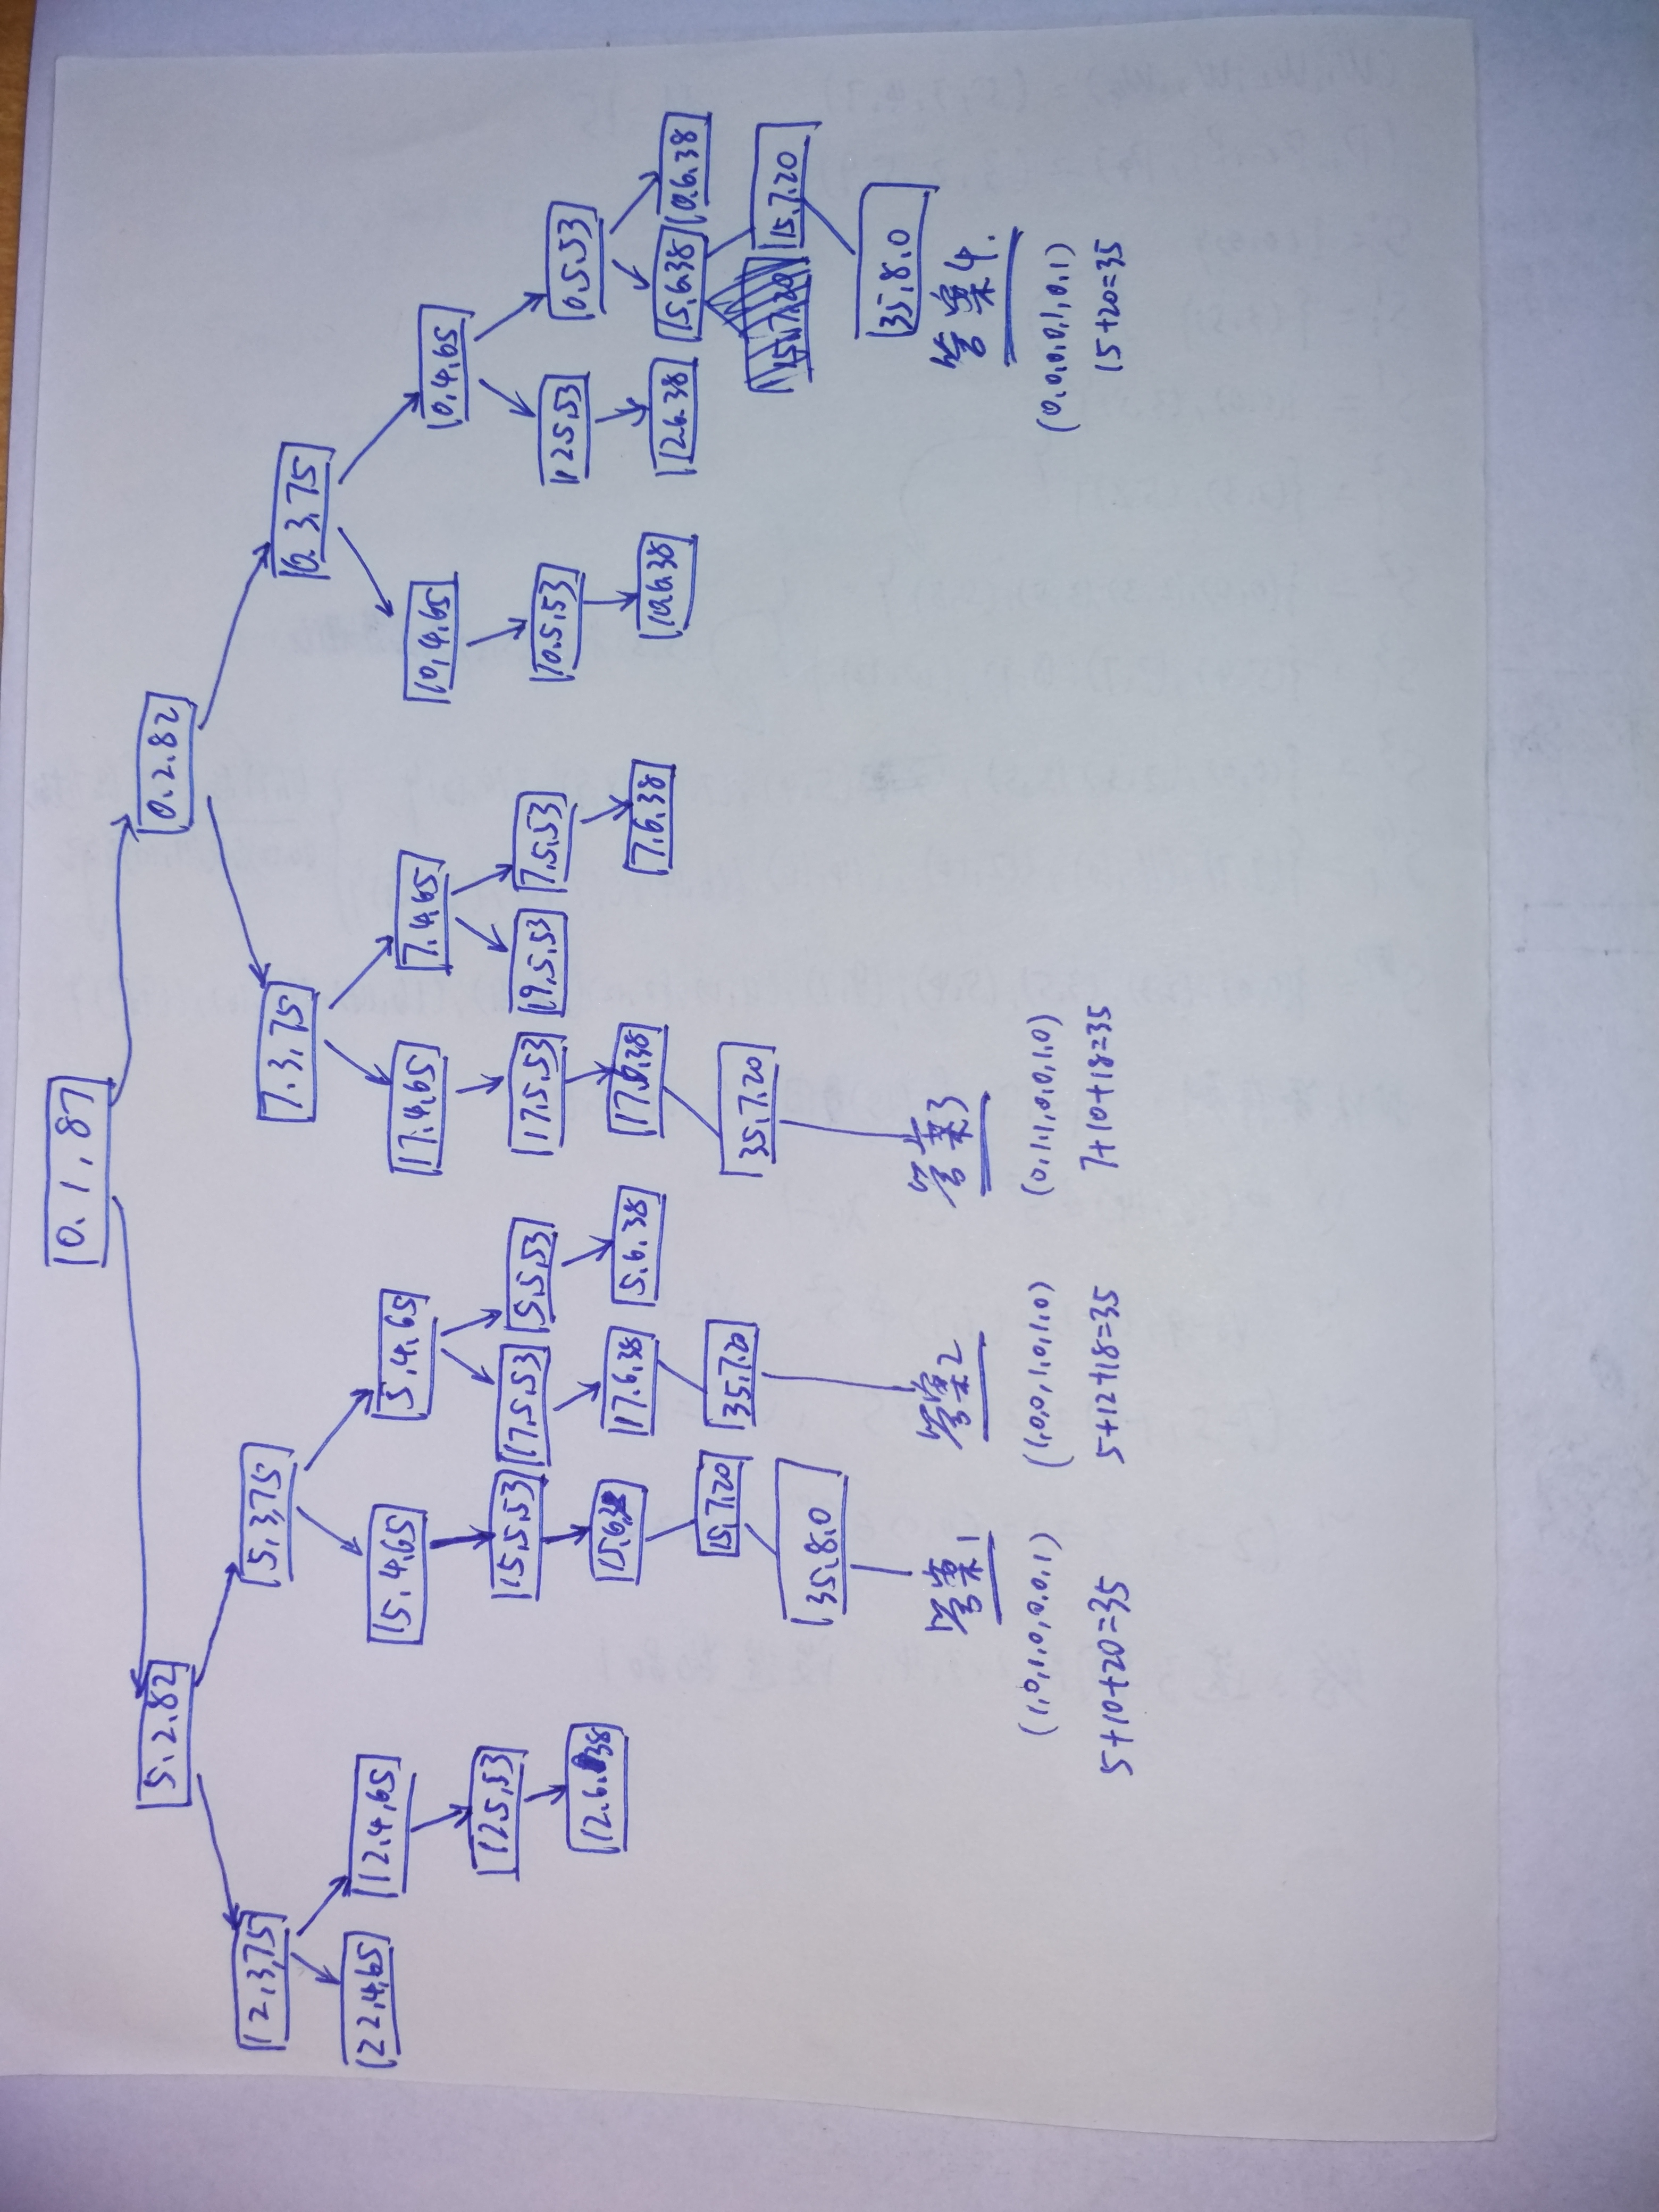 0.1.87
5.2.82
0.2.82
12.3.75
5.3.75
7.3.75
0.3.75
22.4.65
12.4.65
15.4.65
5.4.65
17.4.65
7.4.65
10.4.65
0.4.65
12.5.53
15.5.53
17.5.53
5.5.53
17.5.53
19.5.53
7.5.53
10.5.53
12.5.53
0.5.53
12.6.38
15.6.38
17.6.38
5.6.38
17.6.38
7.6.38
10.6.38
12.6.38
15.6.38
0.6.38
15.7.20
35.7.20
35.7.20
15.7.20
15.7.20
35.8.0
35.8.0
答案1
答案2
答案3
答案4.
(1,0,1,0,0,0,1)
(1,0,0,1,0,1,0)
(0,1,1,0,0,1,0)
(0,0,0,0,1,0,1)
5+10+20=35
5+12+18=35
7+10+18=35
15+20=35